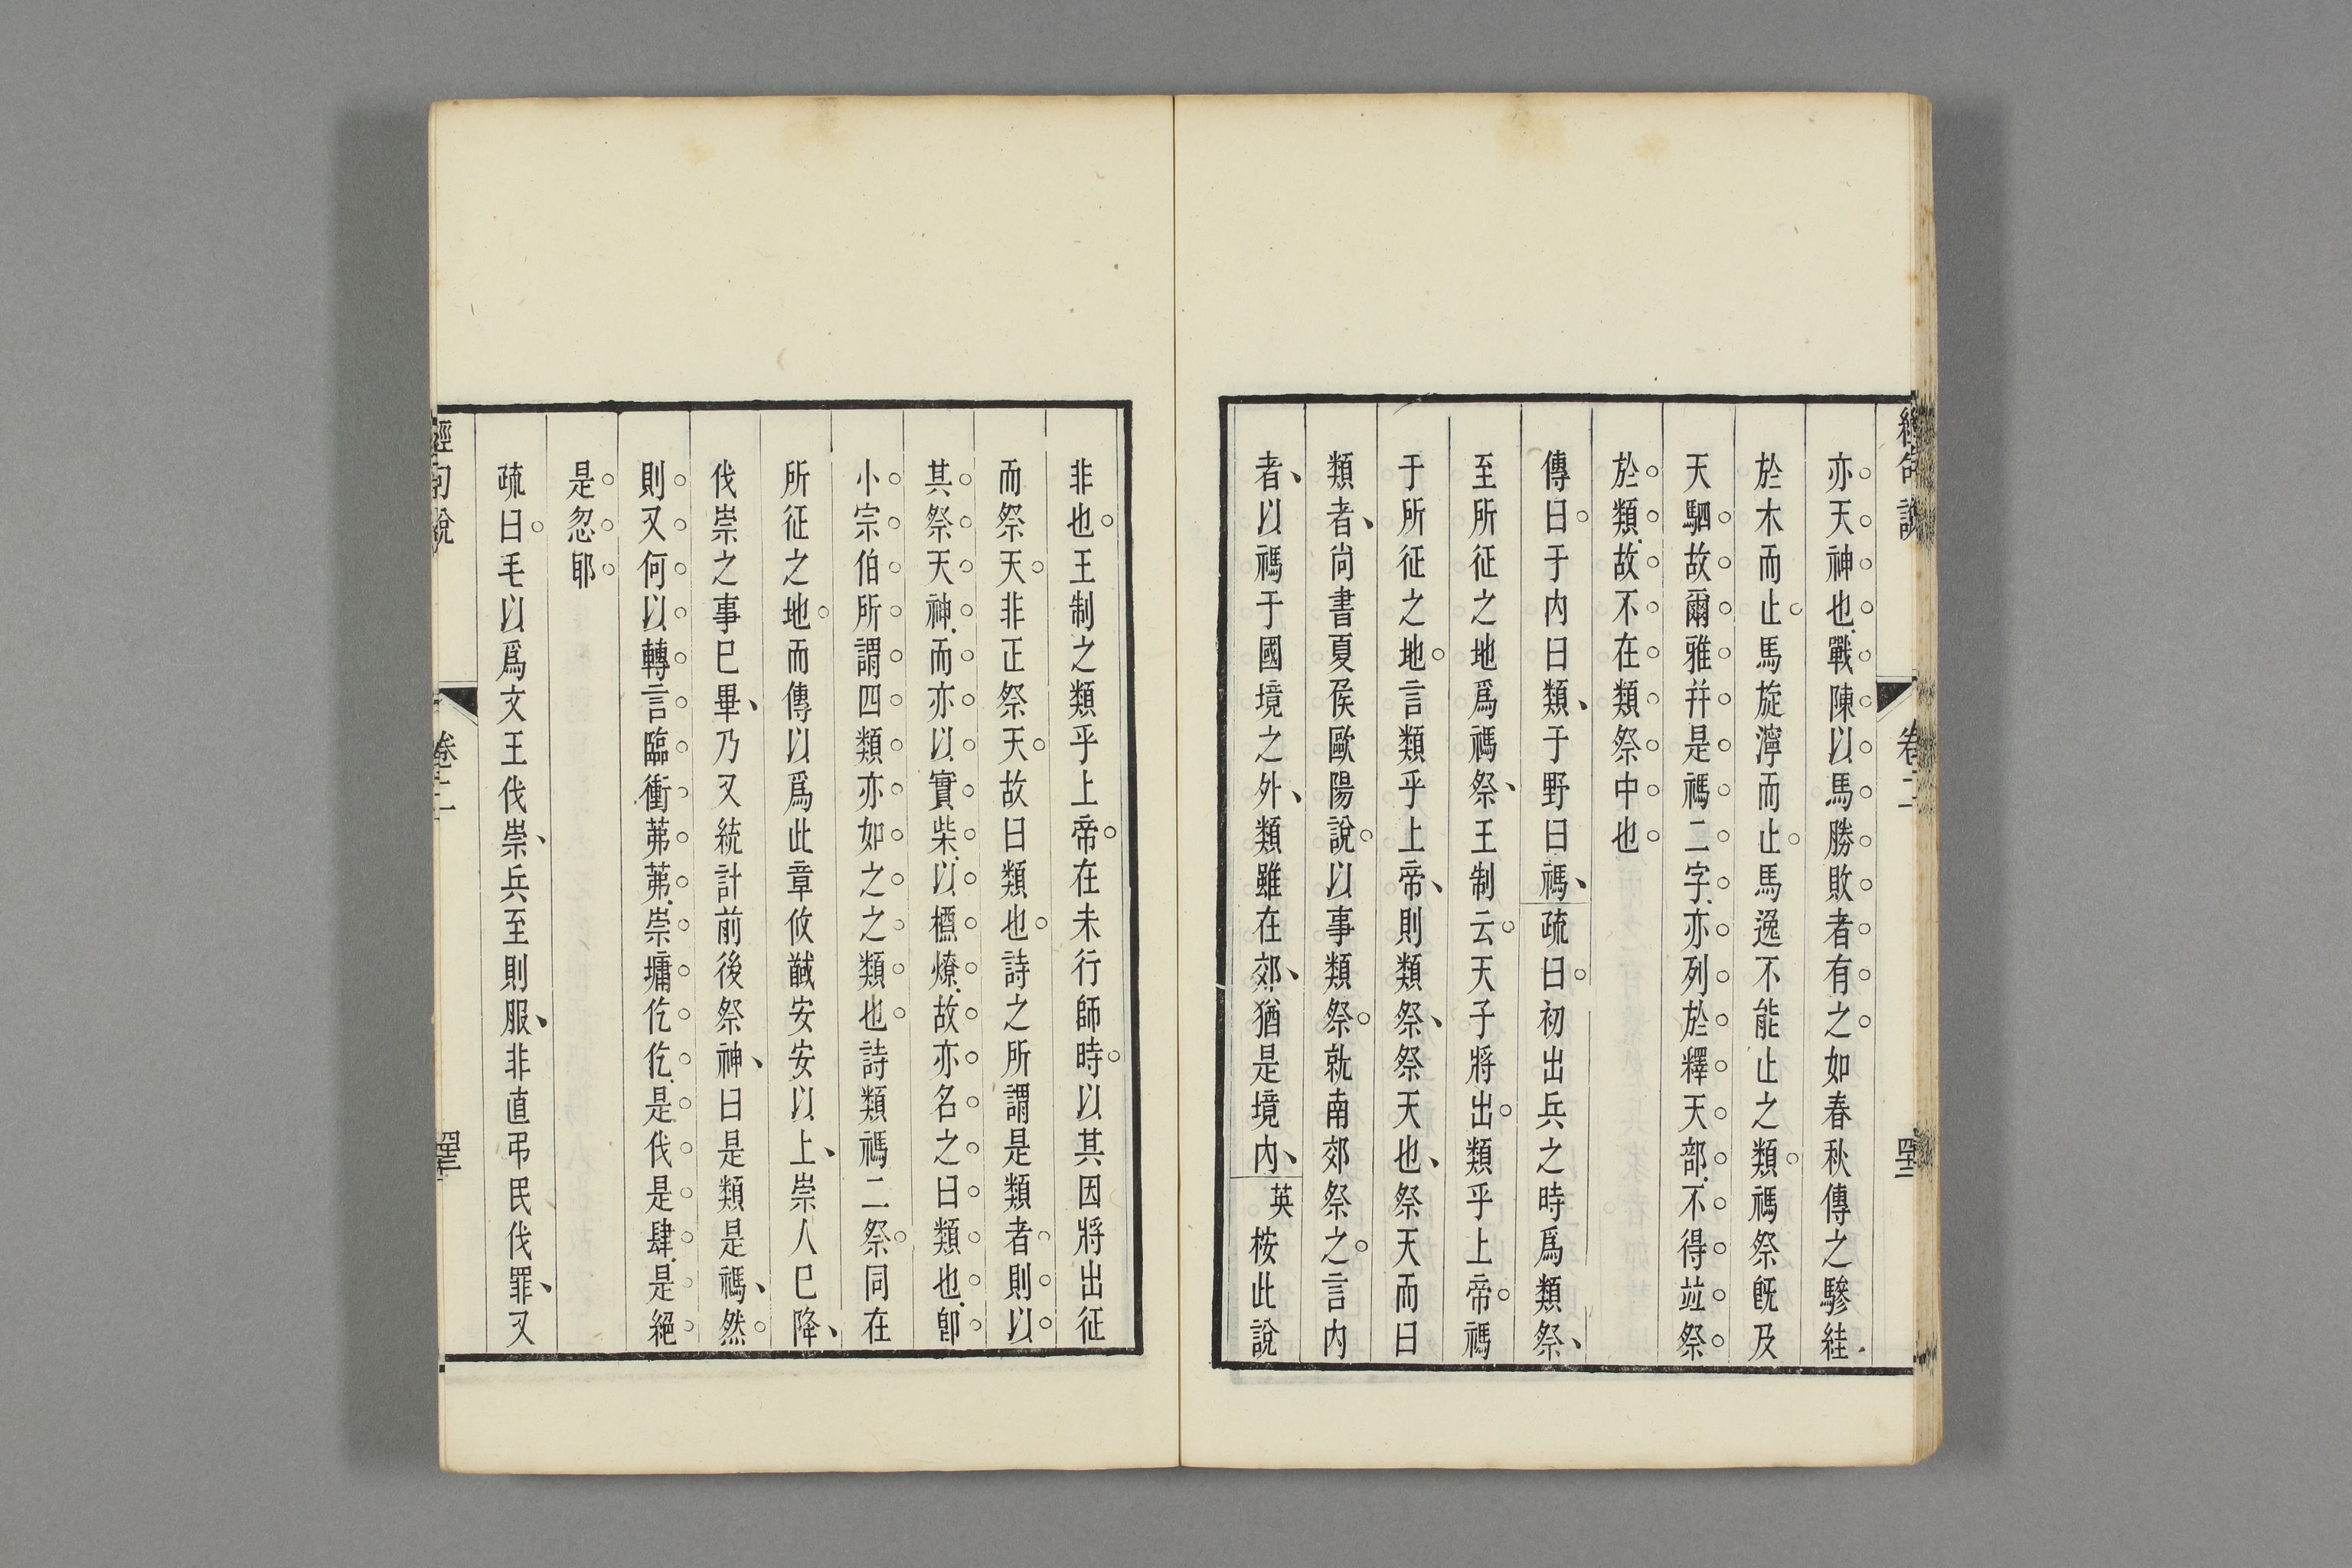 亦天神也戰陳以馬勝敗者有之如春秋傳之驂絓
於木而止馬旋濘而止馬逸不能止之類禡祭旣及
天駟故爾雅幷是禡二字亦列於釋天部不得竝祭
於類故不在類祭中也
傳曰于內曰類于野曰禡疏曰初出兵之時爲類祭
至所征之地爲禡祭王制云天子將出類乎上帝禡
于所征之地言類乎上帝則類祭祭天也祭天而曰
類者尚書夏侯歐陽說以事類祭就南郊祭之言內
者以禡于國境之外類雖在郊猶是境內英桉此說
非也王制之類乎上帝在未行師時以其因將出征
而祭天非正祭天故曰類也詩之所謂是類者則以
其祭天神而亦以實柴以槱燎故亦名之曰類也卽
小宗伯所謂四類亦如之之類也詩類禡二祭同在
所征之地而傳以爲此章攸馘安安以上崇人巳降
伐崇之事巳畢乃又統計前後祭神曰是類是禡然
則又何以轉言臨衝茀茀崇墉仡仡是伐是肆是絕
是忽耶
疏曰毛以爲文王伐崇兵至則服非直弔民伐罪又
經句說
卷二